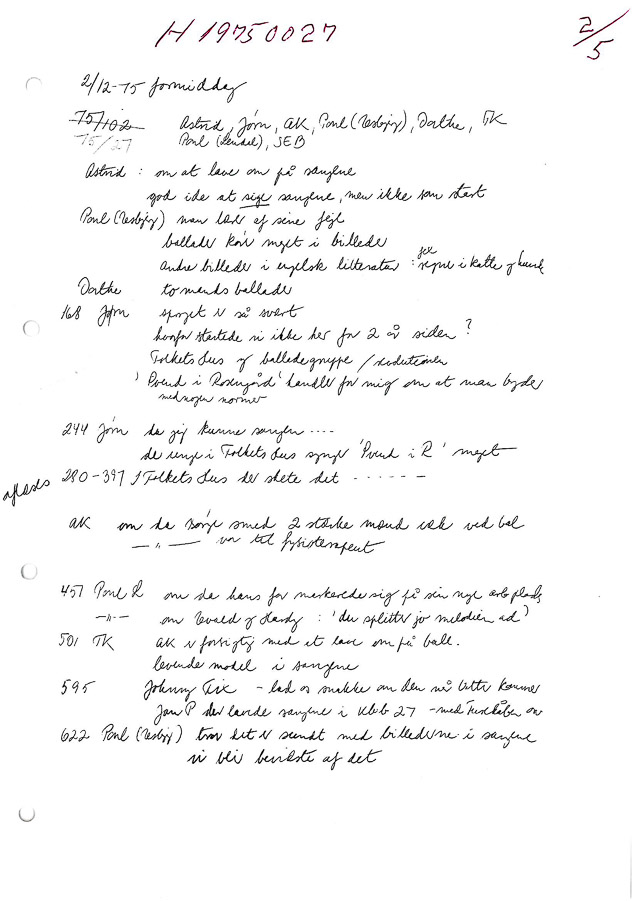 H 19750027
2/5
2/12-75 formiddag
75/102 Astrid, Jørn, AK, Poul (Resbjerg), Dorthe, TK
75/27 Poul (Lendal), JEB
Astrid : om at lave om på sangene
god ide at sige sangene, men ikke som start
Poul (Resbjerg) man lærer af sine fejl
ballader kør meget i billeder
andre billeder i engelsk litteratur : fex regne i katte og hunde
Dorthe tomandsballader
168 Jørn sproget er så svært
hvorfor startede vi ikke her for 2 år siden?
Folkets Hus og balladegruppe /
'Svend i Rosengård' handler for mig om at man bryder
med nogen normer
244 Jørn da jeg kunne sangen ....
de unge i Folkets Hus synger 'Svend i R' meget
aflæses 280-397 I Folkets Hus der skete det - - - - - -
AK om da Børge smed 2 stærke mænd væk ved bal
— " — var til fysioterapeut
457 Poul R om da hans far markerede sig på sin nye arb.plads
— " — om Evald og Hardy : 'du splitter jo melodien ad'
501 TK AK er forsigtig med at lave om på ball.
levende model i sangene
595 Johnny - lad os snakke om den når Gitte kommer
Jan P der lavede sangene i Klub 27 - med
622 Poul (Resbjg) tror det er sundt med billederne i sangene
vi blir bevidste af det